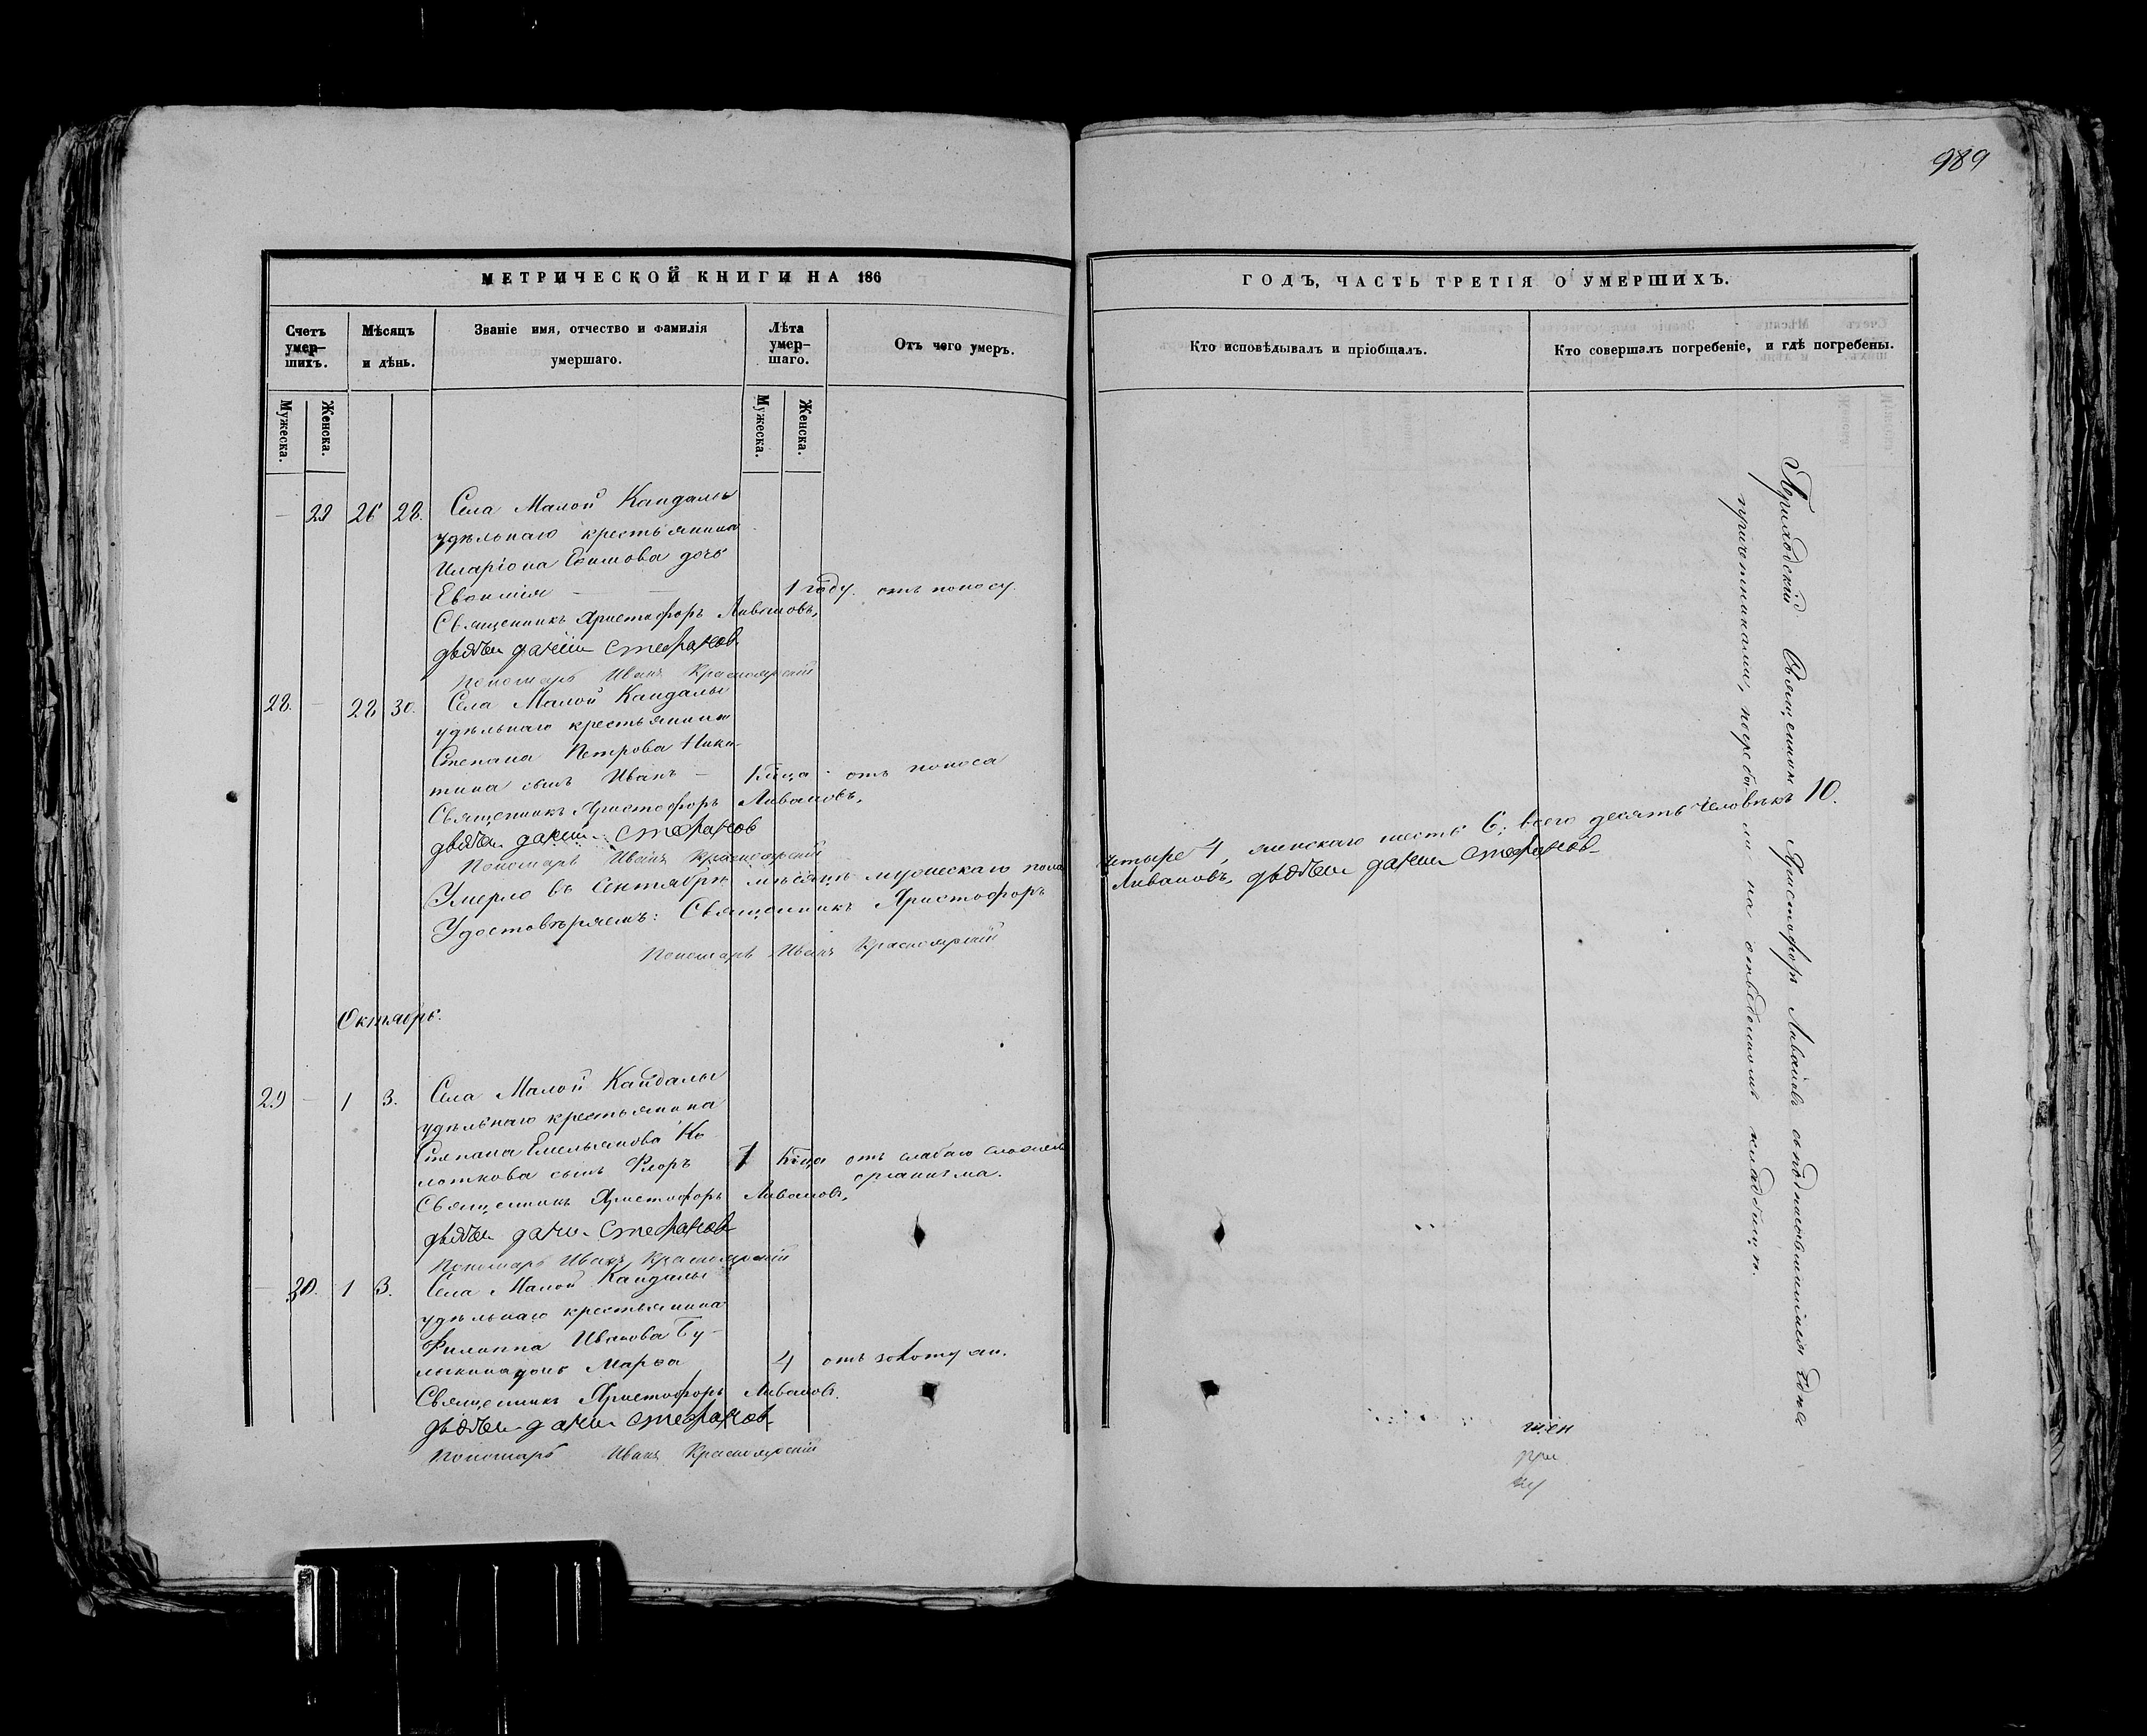 989
МЕТРИЧЕСКОЙ КНИГИ НА 186
Счетъ умер-шихъ.
Мѣсяцъ и дѣнь.
Званіе имя, отчество и фамилія умершаго.
Лѣта умер-шаго.
Отъ чего умеръ.
Мужеска.
Женска.
Мужеска.
Женска.
— 29 26 28. Села Малой Кандалы
удѣльнаго крестьянина
Иларіона Ефимова дочь
Евфимія — 1 году. отъ поносу.
Священникъ Христофоръ Ливановъ,
Пономарь Иванъ Красноярскій
28. — 28 30. Села Малой Кандалы
удѣльнаго крестьянина
Степана Петрова Ники-
тина сынъ Иванъ — отъ поноса
Священникъ Христофоръ Ливановъ,
Пономарь Иванъ Красноярскій
Умерло въ Сентябрѣ мѣсяцѣ мужескаго пола
Удостовѣряемъ: Священникъ Христофоръ
Пономарь Иванъ Красноярскій
Октябрь.
29 — 1 3. Села Малой Кандалы
удѣльнаго крестьянина
Степана Емельянова Ко-
лоткова сынъ Флоръ отъ слабаго сложенія
организма.
Священникъ Христофоръ Ливановъ,
Пономарь Иванъ Красноярскій
— 30. 1 3. Села Малой Кандалы
удѣльнаго крестьянина
Филиппа Иванова Бу-
лыкина дочь Марѳа 4 отъ золотухи.
Священникъ Христофоръ Ливановъ.
Пономарь Иванъ Красноярскій
ГОДЪ, ЧАСТЬ ТРЕТІЯ О УМЕРШИХЪ.
Кто исповѣдывалъ и пріобщалъ.
Кто совершалъ погребеніе, и гдѣ погребены.
четыре 4, женскаго шесть 6; всего десять человѣкъ 10.
Ливановъ,
Приходскій Священникъ Христофоръ Ливановъ съ подписавшимися здѣсь
причетниками, погребали на отведенномъ кладбищѣ.